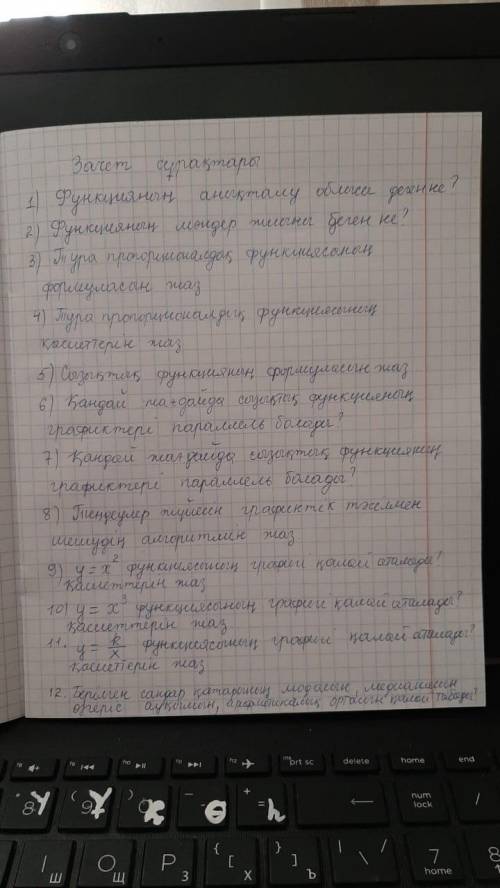 Зачет сұрақтары
1) Функцияның анықталу облысы деген не?
2) Функцияның мәндер жиыны деген не?
3) Тура пропорционалдық функциясының
формуласын жаз
4) Тура пропорционалдық функциясының
қасиеттерін жаз
5) Сызықтық функцияның формуласын жаз
6) Қандай жағдайда сызықтық функцияның
графиктері параллель болады?
7) Қандай жағдайда сызықтық функцияның
графиктері параллель болады?
8) Теңдеулер жүйесін графиктік тәсілмен
шешудің алгоритмін жаз
9) y = x² функциясының графигі қалай аталады?
Қасиеттерін жаз
10) y = x³ функциясының графигі қалай аталады?
Қасиеттерін жаз
11. y = k/x функциясының графигі қалай аталады?
Қасиеттерін жаз
12. Берілген сандар қатарының модасын, медианасын
өзгеріс ауқымын, арифметикалық ортасын қалай табады?
F8 F9 F10 F11 F12 prt sc delete home end
8 9 0 - + = num lock /
I Ш O Щ P З { [ Х } ] Ъ | \ / 7 home 8